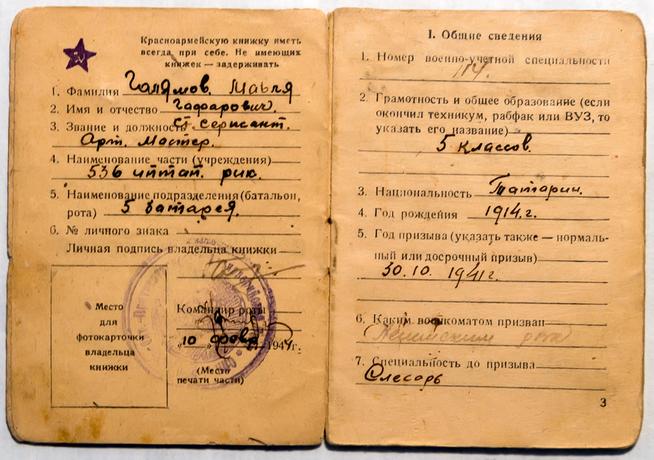 Красноармейскую книжку иметь
всегда при себе. Не имеющих
книжек — задерживать
1. Фамилия Галямов
2. Имя и отчество Гафарович.
3. Звание и должность ст. сержант.
Арт. Мастер.
4. Наименование части (учреждения)
536 иптап. ркк.
5. Наименование подразделения (батальон,
рота) 5 батарея.
6. № личного знака
Личная подпись владельца книжки
Место
для
фотокарточки
владельца
книжки
Командир роты
"10" февр 1944г.
(Место
печати части)
I. Общие сведения
1. Номер военно-учетной специальности
2. Грамотность и общее образование (если
окончил техникум, рабфак или ВУЗ, то
указать его название)
5 классов.
3. Национальность Татарин.
4. Год рождения 1914.г.
5. Год призыва (указать также — нормаль-
ный или досрочный призыв)
30.10.1941г.
6. Каким военкоматом призван
7. Специальность до призыва
Слесарь
3